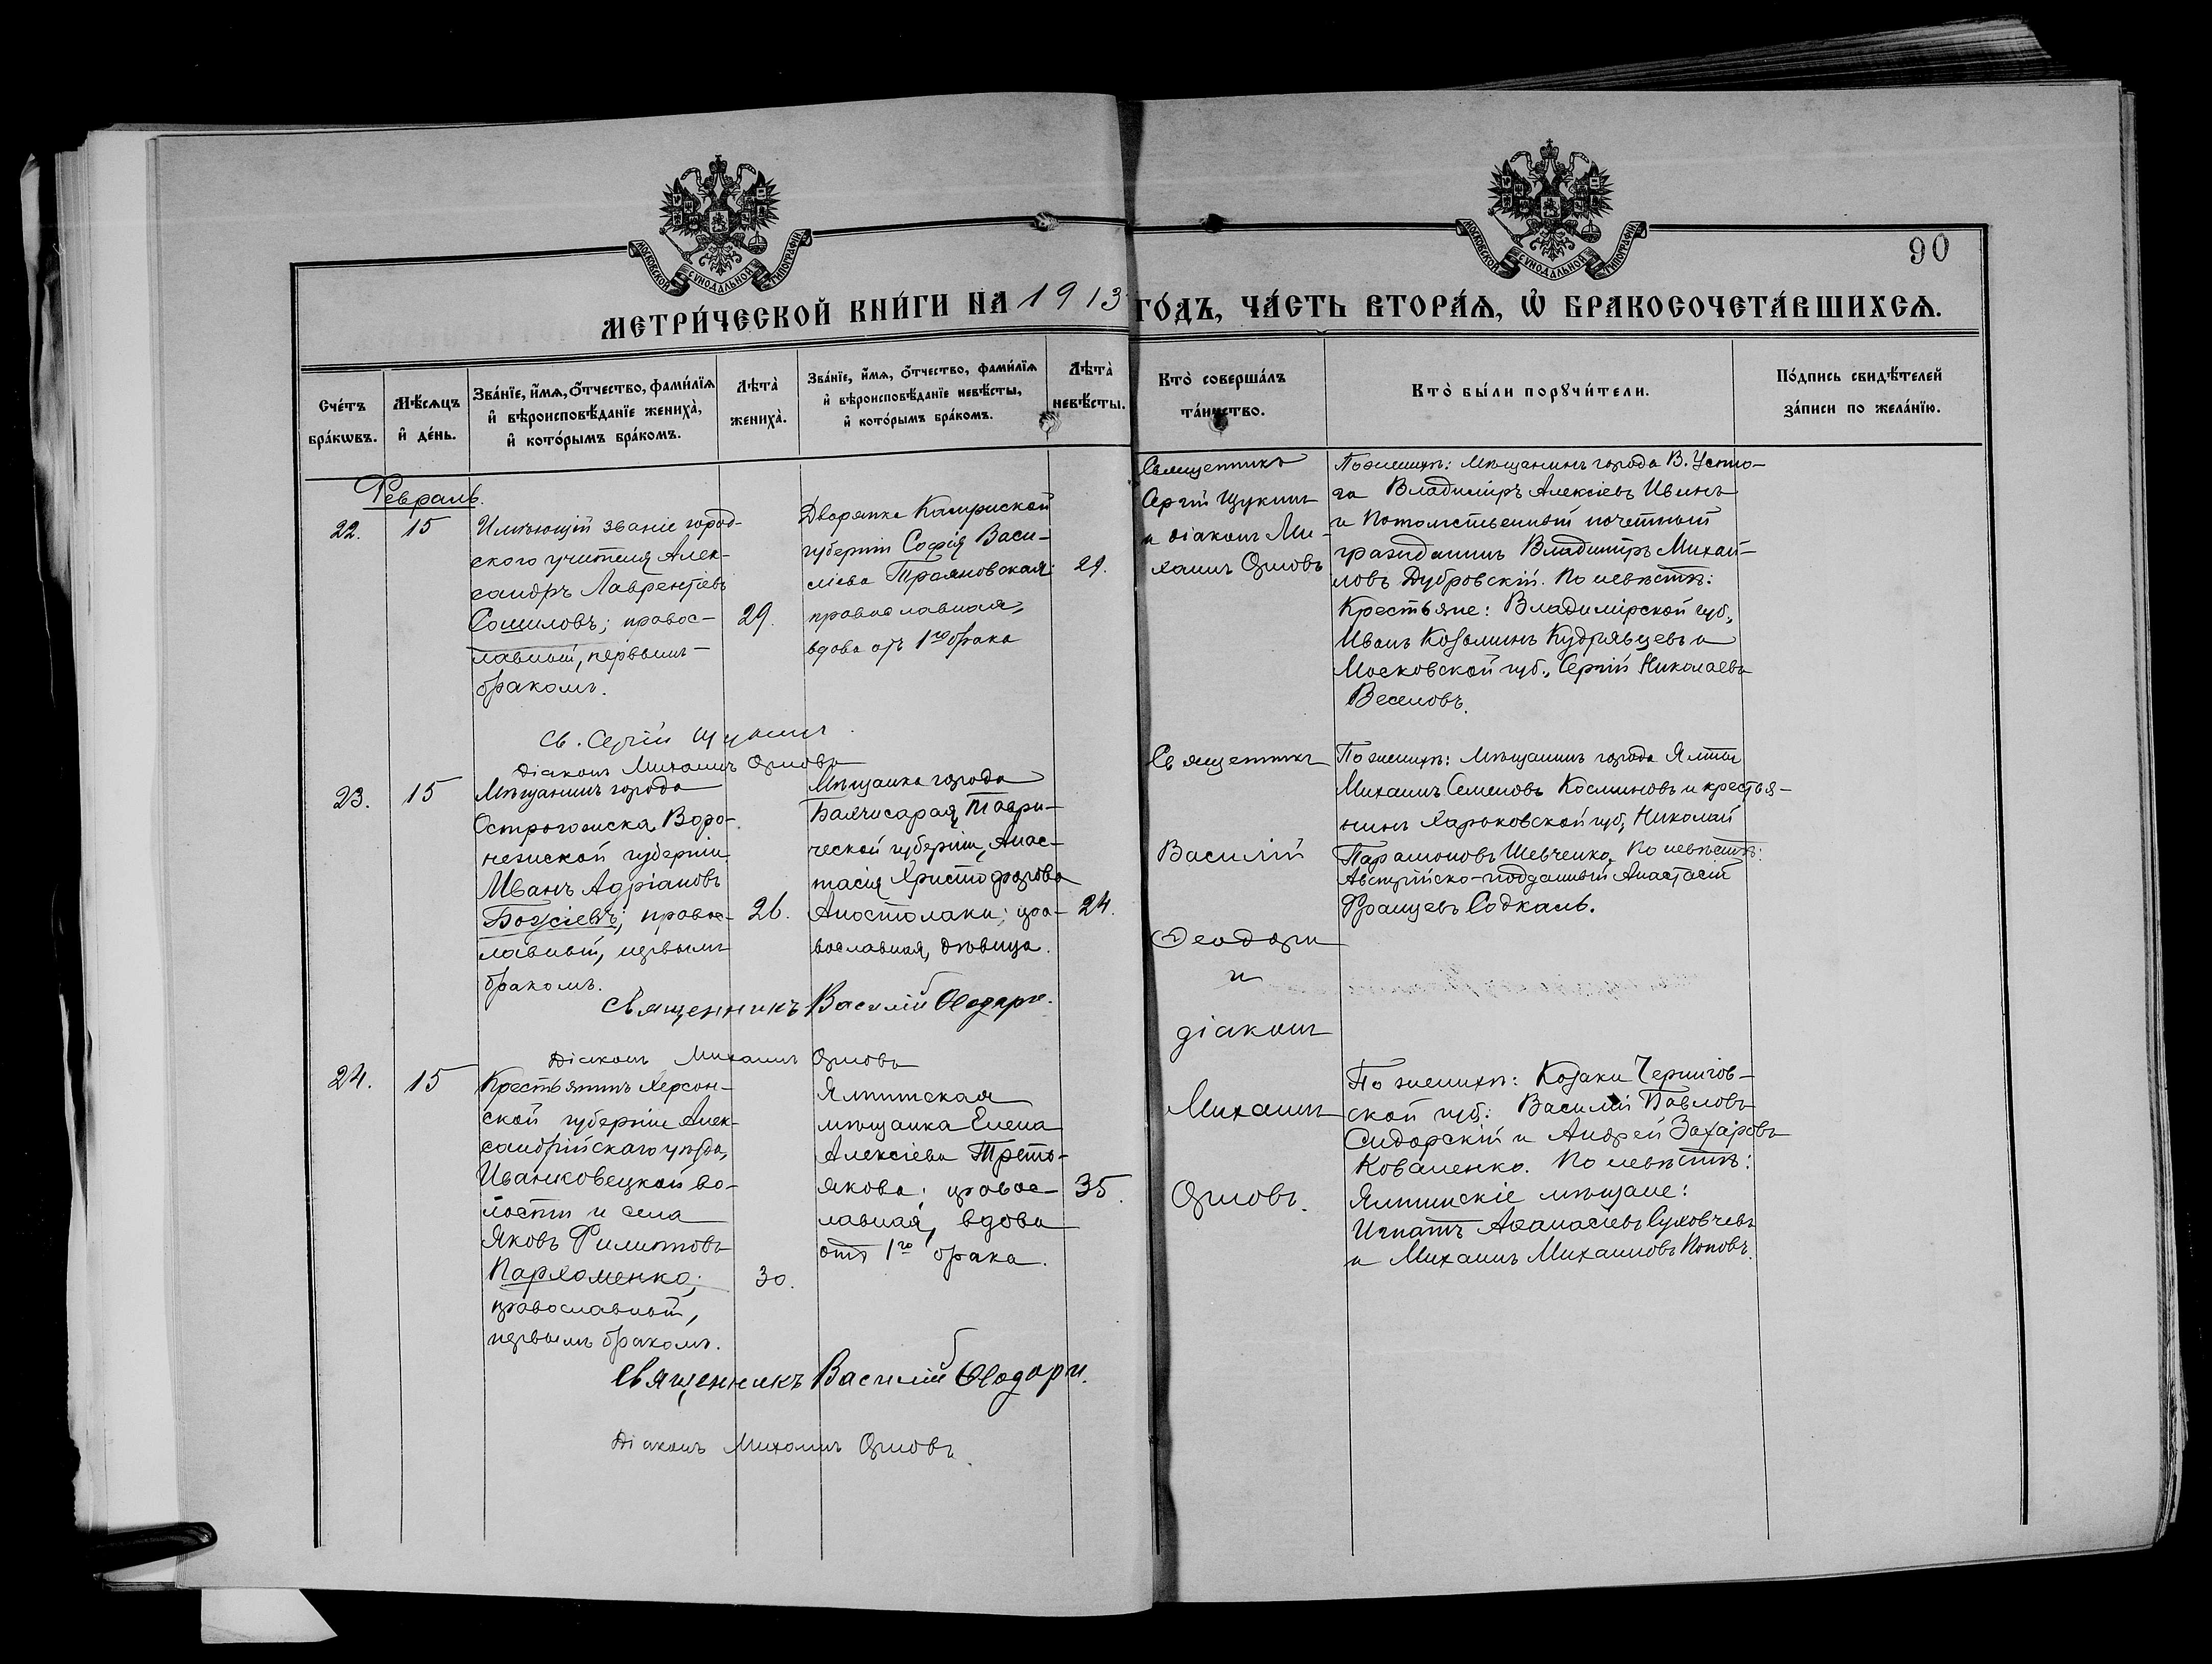 МОСКОВСКОЙ СѴНОДАЛЬНОЙ ТИПОГРАФІИ
МОСКОВСКОЙ СѴНОДАЛЬНОЙ ТИПОГРАФІИ
90
МЕТРИ́ЧЕСКОЙ КНИ́ГИ НА 1913 ГО́ДЪ, ЧА́СТЬ ВТОРА́Ѧ, Ѡ҆ БРАКОСОЧЕТА́ВШИХСѦ.
Сче́тъ
бра́кѡвъ.
Мѣ́сѧцъ
и҆ де́нь.
Зва́нїе, и҆́мѧ, ѻ҆́тчество, фами́лїѧ
и҆ вѣроисповѣ́данїе жениха̀,
и҆ кото́рымъ бра́комъ.
Лѣта̀
жениха̀.
Зва́нїе, и҆́мѧ, ѻ҆́тчество, фами́лїѧ
и҆ вѣроисповѣ́данїе невѣ́сты,
и҆ кото́рымъ бра́комъ.
Лѣта̀
невѣ́сты.
Кто̀ соверша́лъ
та́инство.
Кто̀ бы́ли порꙋчи́тели.
По́дпись свидѣ́телей
за́писи по жела́нїю.
Февраль.
22.
15
Имѣющій званіе город-
ского учителя Алек-
сандръ Лаврентіевъ
Сошиловъ; правос-
лавный, первымъ
бракомъ.
29.
Дворянка
губерніи Софія Васи-
ліева Трояновская
православная,
вдова отъ 1го брака
29.
Священникъ
Сергій Щукинъ
и діаконъ Ми-
хаилъ Орловъ
По женихѣ: мѣщанинъ города В. Устю-
га Владиміръ Алексіевъ Ивинъ
и потомственный почетный
гражданинъ Владиміръ Михай-
ловъ Дубровскій. По невѣстѣ:
Крестьяне: Владимірской губ.,
Иванъ Козьминъ Кудрявцевъ и
Московской губ., Сергій Николаевъ
Веселовъ.
Св. Сергій Щукинъ
Діаконъ Михаилъ Орловъ
23.
15
Мѣщанинъ города
Острогожска Воро-
нежской губерніи
Иванъ Адріановъ
Божіевъ; правос-
лавный, первымъ
бракомъ.
26.
Мѣщанка города
Бахчисарая, Таври-
ческой губерніи, Анас-
тасія Христофорова
Апостолаки; пра-
вославная, дѣвица.
24.
Священникъ
Василій
Ѳеодори
и
діаконъ
Михаилъ
Орловъ.
По женихѣ: мѣщанинъ города Ялты
Михаилъ Семеновъ Косминовъ и крестья-
нинъ Харьковской губ, Николай
Парамоновъ Шевченко. По невѣстѣ:
Австрійско-подданный Анастасій
Францевъ Содкаль.
Священникъ Василій Ѳеодори.
Діаконъ Михаилъ Орловъ
24.
15
Крестьянинъ Херсон-
ской губерніи Алек-
сандрійскаго уѣзда,
Иванковецкой во-
лости и села
Яковъ Филипповъ
Пархоменко;
православный,
первымъ бракомъ.
30.
Ялтинская
мѣщанка Елена
Алексіева Треть-
якова; правос-
лавная, вдова
отъ 1го брака.
35.
По женихѣ: Козаки Чернигов-
ской губ: Василій Павловъ
Сидорскій и Андрей Захаровъ
Коваленко. По невѣстѣ:
Ялтинскіе мѣщане:
Игнатъ Аѳанасіевъ Суховчевъ
и Михаилъ Михаиловъ Поповъ.
Священникъ Василій Ѳеодори.
Діаконъ Михаилъ Орловъ.